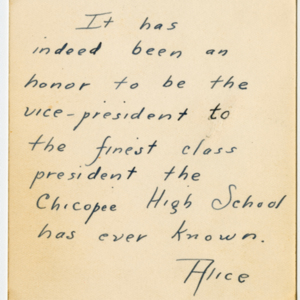 It has
indeed been an
honor to be the
vice-president to
the finest class
president the
Chicopee High School
has ever known.
Alice